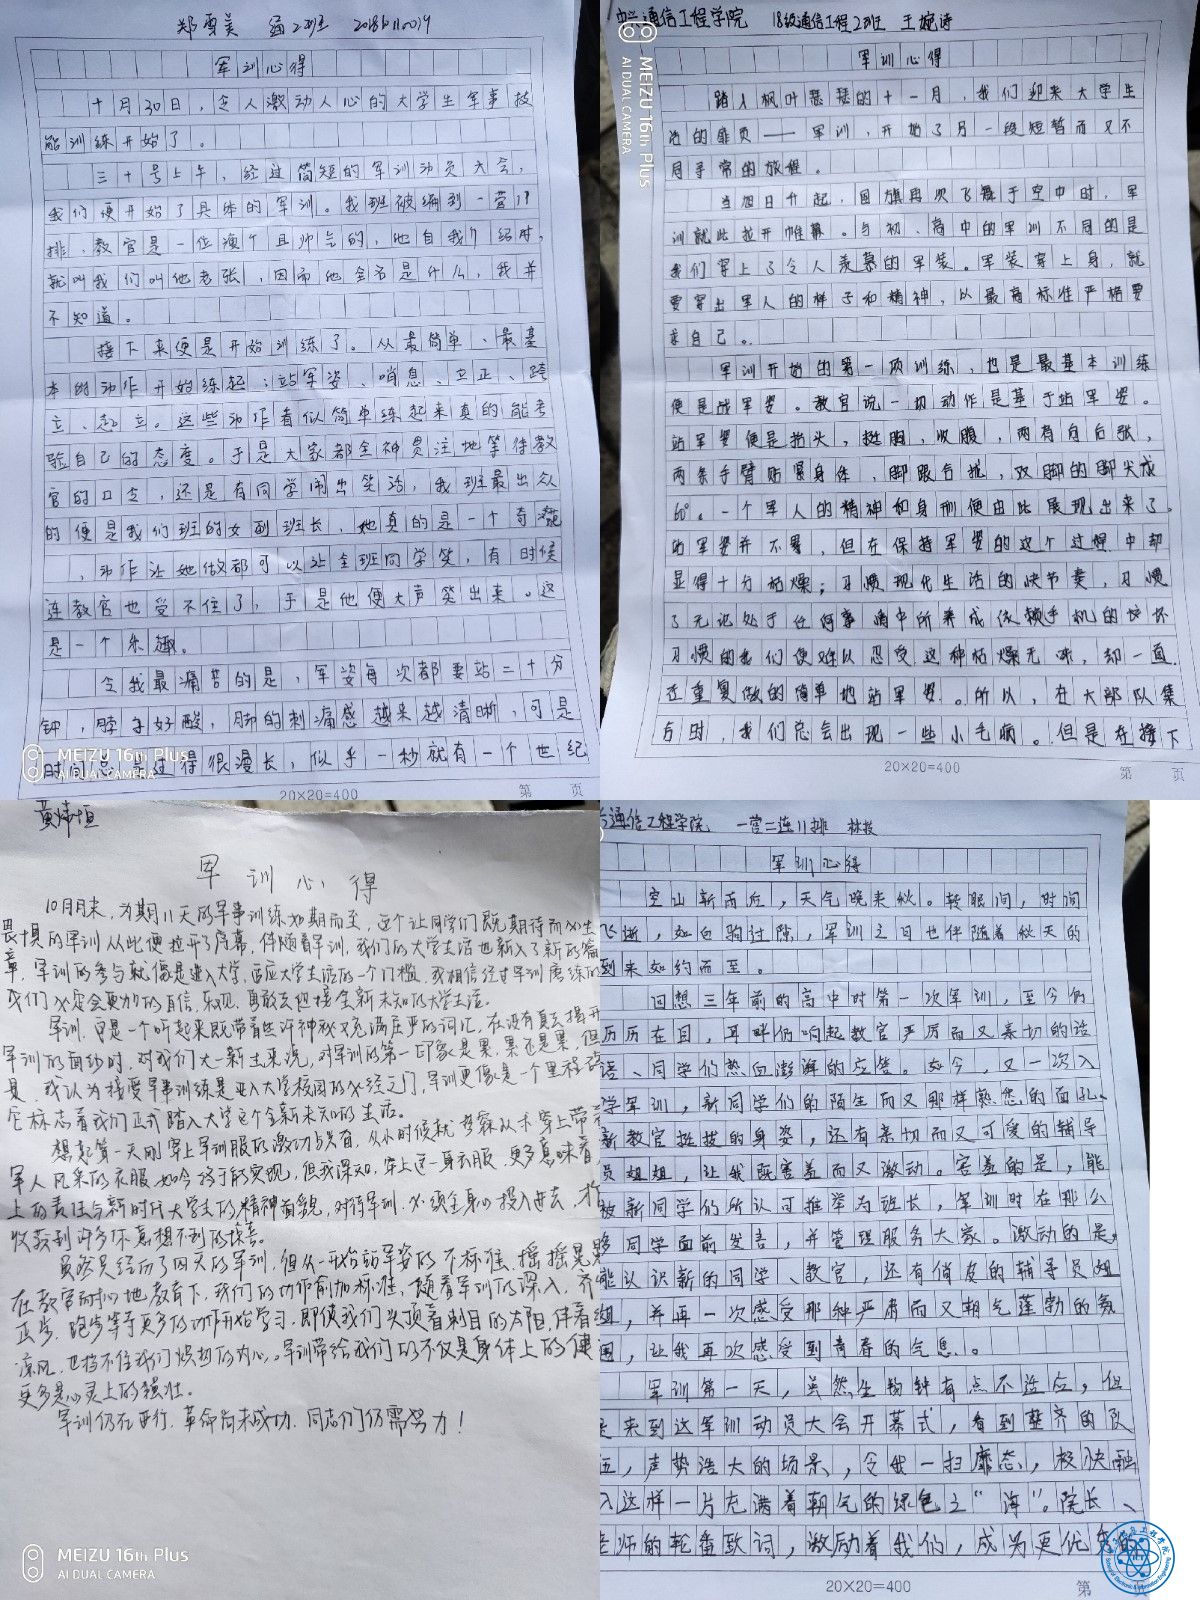 郑雪美 通2班 2018年11月019
军训心得
十月30日，令人激动人心的大学生军事技
能训练开始了。
三十号上午，经过简短的军训动员大会，
我们便开始了具体的军训。我班被编到一营11
排，教官是一位瘦个且帅气的，他自我介绍时，
就叫我们叫他老张，因而他全名是什么，我并
不知道。
接下来便是开始训练了。从最简单、最基
本的动作开始练起；站军姿、哨息、立正、跨
立、起立。这些动作看似简单练起来真的能考
验自己的态度。于是大家都全神贯注地等待教
官的口令，还是有同学闹出笑话，我班最出众
的便是我们班的女副班长，她真的是一个奇葩
，动作让她做都可以让全班同学笑，有时候
连教官也受不住了，于是他便大声笑出来。这
是一个乐趣。
令我最痛苦的是，军姿每次都要站二十分
钟，脖子好酸，脚的刺痛感越来越清晰，可是
时间总是过得很漫长，似乎一秒就有一个世纪
MEIZU 16th Plus
AI DUAL CAMERA
20×20=400 第 页
通信工程学院 18级通信工程2班 王婉诗
MEIZU 16th Plus
AI DUAL CAMERA
军训心得
踏入枫叶瑟瑟的十一月，我们迎来大学生
活的扉页——军训，开始了另一段短暂而又不
同寻常的旅程。
当旭日升起，国旗再次飞舞于空中时，军
训就此拉开帷幕。与初、高中的军训不同的是
我们穿上了令人羡慕的军装。军装穿上身，就
要穿出军人的样子和精神，以最高标准严格要
求自己。
军训开始的第一项训练，也是最基本训练
便是战军姿。教官说一切动作是基于站军姿。
站军姿便是抬头，挺胸，收腹，两肩向后张，
两条手臂贴紧身体，脚跟合拢，双脚的脚尖成
60°。一个军人的精神和身形便由此展现出来了。
站军姿并不累，但在保持军姿的这个过程中却
显得十分枯燥；习惯现代生活的快节奏，习惯
了无论处于任何事情中所养成依赖手机的坏
习惯的我们便难以忍受这种枯燥无味，却一直
在重复做的简单地站军姿。所以，在大部队集
合时，我们总会出现一些小毛病。但是在接下
20×20=400 第 页
黄炜恒
军训心得
10月月末，为期11天的军事训练如期而至，这个让同学们既期待而又生
畏惧的军训从此便拉开了序幕，伴随着军训，我们的大学生活也翻入了新的篇
章，军训的参与就像是进入大学，适应大学生活的一个门槛，我相信经过军训磨练的
我们必定会更加的自信，乐观，勇敢去迎接全新未知的大学生活。
军训，可是一个听起来既带着些许神秘又充满庄严的词汇，在没有真去揭开
军训的面纱时，对我们大一新生来说，对军训的第一印象是累，累还是累，但
是，我认为接受军事训练是进入大学校园的必经之门，军训更像是一个里程碑
它标志着我们正式踏入大学这个全新未知的生活。
想起第一天刚穿上军训服的激动与兴奋，从小时候就梦寐以求穿上带着
军人风采的衣服，如今终于能实现，但我深知，穿上这一身衣服，更多意味着身
上的责任与新时代大学生的精神面貌，对待军训，必须全身心投入进去，才
收获到许多你意想不到的惊喜。
虽然只经历了四天的军训，但从一开始站军姿的不标准，摇摇晃晃
在教官耐心地教育下，我们的动作愈加标准，随着军训的深入，齐
正步，跑步等等更多的动作开始学习，即使我们头顶着刺目的太阳，伴着
凉风，也挡不住我们炽热的内心。军训带给我们的不仅是身体上的健
更多是心灵上的强壮。
军训仍在进行，革命尚未成功，同志们仍需努力！
MEIZU 16th Plus
AI DUAL CAMERA
通信工程学院 一营二连11排 林投
军训心得
空山新雨后，天气晚来秋。转眼间，时间
飞逝，如白驹过隙，军训之日也伴随着秋天的
到来如约而至。
回想三年前的高中时第一次军训，至今仍
历历在目，耳畔仍响起教官严厉而又亲切的话
语、同学们热血澎湃的应答。如今，又一次入
学军训，新同学们的陌生而又那样熟悉的面孔、
新教官挺拔的身姿，还有亲切而又可爱的辅导
员姐姐，让我既害羞而又激动。害羞的是，能
被新同学的所认可推举为班长，军训时在那么
多同学面前发言，并管理服务大家。激动的是，
能认识新的同学、教官，还有俏皮的辅导员姐
姐，并再一次感受那种严肃而又朝气蓬勃的氛
围，让我再次感受到青春的气息。
军训第一天，虽然生物钟有点不适应，但
是来到这军训动员大会开幕式，看到整齐的队
伍，声势浩大的场景，令我一扫靡态，极快融
入这样一片充满着朝气的绿色之“海”。院长、
老师的轮番致词，激励着我们，成为更优秀的
20×20=400 第